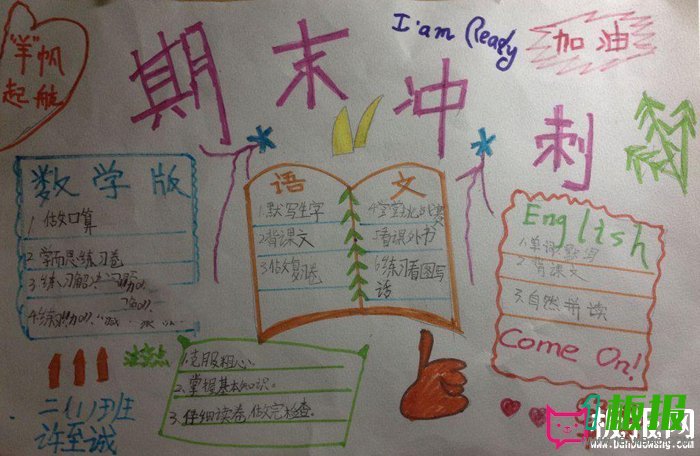 "羊"帆
起航
期末冲刺
I am Ready
加油
数学版
1 做口算
2 学而思练习卷
3 练习解决
语文
1.默写生字
2背课文
3做复习卷
5看课外书
6练习看图写
话
English
1.单词默写
2 背课文
3.自然拼读
Come On!
注意点
1.克服粗心.
2.掌握基本知识.
3.仔细读卷,做完检查.
二(1)班
许至诚
板报网
www.banbaowang.com